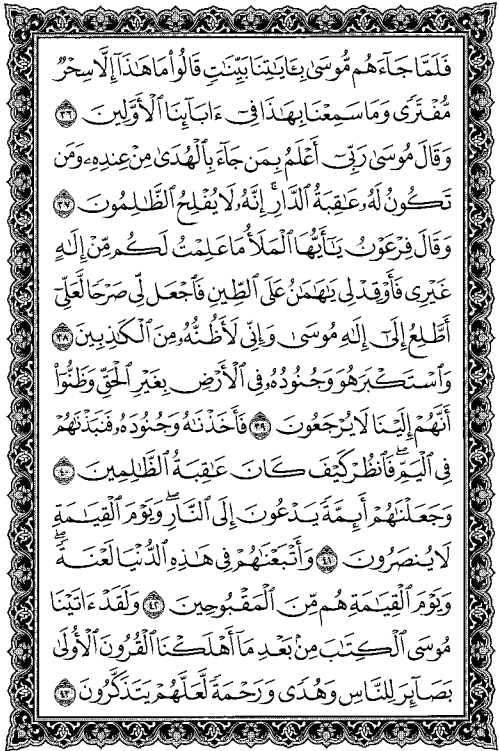 فَلَمَّا جَآءَهُم مُّوسَىٰ بِـَٔايَـٰتِنَا بَيِّنَـٰتٍ قَالُوا۟ مَا هَـٰذَآ إِلَّا سِحْرٌ
مُّفْتَرًى وَمَا سَمِعْنَا بِهَـٰذَا فِىٓ ءَابَآئِنَا ٱلْأَوَّلِينَ ٣٦
وَقَالَ مُوسَىٰ رَبِّىٓ أَعْلَمُ بِمَن جَآءَ بِٱلْهُدَىٰ مِنْ عِندِهِۦ وَمَن
تَكُونُ لَهُۥ عَـٰقِبَةُ ٱلدَّارِ ۖ إِنَّهُۥ لَا يُفْلِحُ ٱلظَّـٰلِمُونَ ٣٧
وَقَالَ فِرْعَوْنُ يَـٰٓأَيُّهَا ٱلْمَلَأُ مَا عَلِمْتُ لَكُم مِّنْ إِلَـٰهٍ
غَيْرِى فَأَوْقِدْ لِى يَـٰهَـٰمَـٰنُ عَلَى ٱلطِّينِ فَٱجْعَل لِّى صَرْحًا لَّعَلِّىٓ
أَطَّلِعُ إِلَىٰٓ إِلَـٰهِ مُوسَىٰ وَإِنِّى لَأَظُنُّهُۥ مِنَ ٱلْكَـٰذِبِينَ ٣٨
وَٱسْتَكْبَرَ هُوَ وَجُنُودُهُۥ فِى ٱلْأَرْضِ بِغَيْرِ ٱلْحَقِّ وَظَنُّوٓا۟
أَنَّهُمْ إِلَيْنَا لَا يُرْجَعُونَ ٣٩ فَأَخَذْنَـٰهُ وَجُنُودَهُۥ فَنَبَذْنَـٰهُمْ
فِى ٱلْيَمِّ ۖ فَٱنظُرْ كَيْفَ كَانَ عَـٰقِبَةُ ٱلظَّـٰلِمِينَ ٤٠
وَجَعَلْنَـٰهُمْ أَئِمَّةً يَدْعُونَ إِلَى ٱلنَّارِ ۖ وَيَوْمَ ٱلْقِيَـٰمَةِ
لَا يُنصَرُونَ ٤١ وَأَتْبَعْنَـٰهُمْ فِى هَـٰذِهِ ٱلدُّنْيَا لَعْنَةً ۖ
وَيَوْمَ ٱلْقِيَـٰمَةِ هُم مِّنَ ٱلْمَقْبُوحِينَ ٤٢ وَلَقَدْ ءَاتَيْنَا
مُوسَى ٱلْكِتَـٰبَ مِنۢ بَعْدِ مَآ أَهْلَكْنَا ٱلْقُرُونَ ٱلْأُولَىٰ
بَصَآئِرَ لِلنَّاسِ وَهُدًى وَرَحْمَةً لَّعَلَّهُمْ يَتَذَكَّرُونَ ٤٣